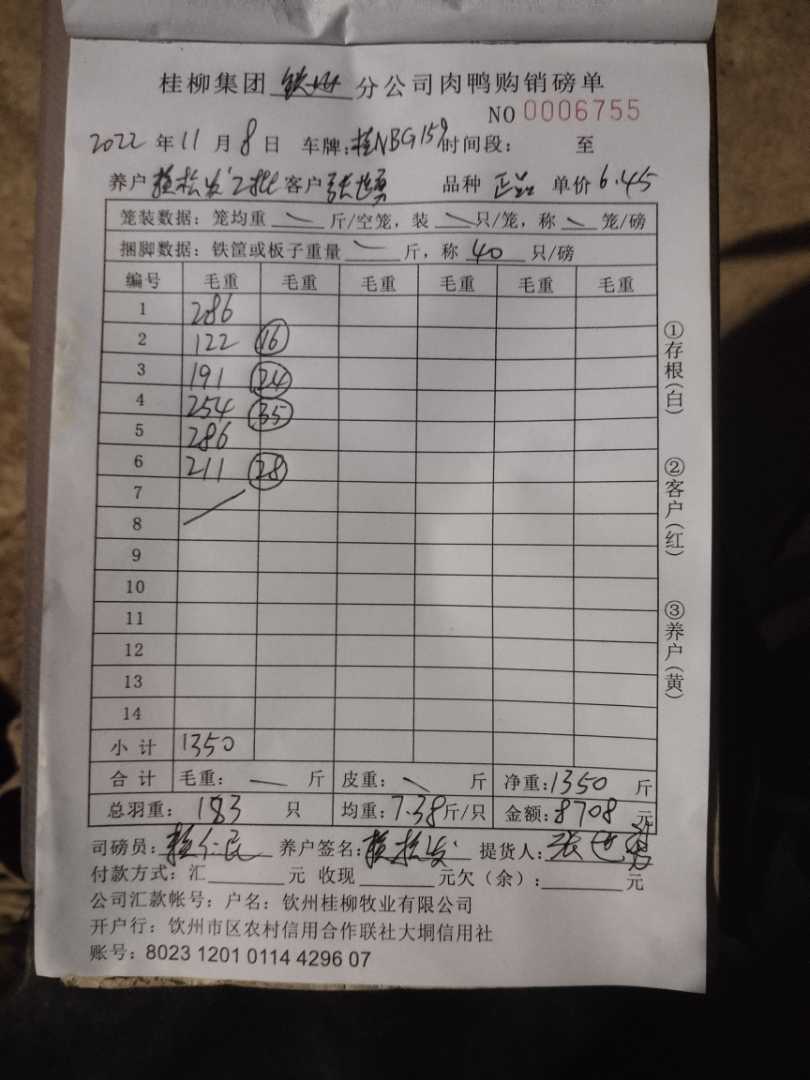 桂柳集团 钦州 分公司肉鸭购销磅单
NO 0006755
2022 年 11 月 8 日 车牌: 桂NBG159 时间段: 至
养户 松发 2批 客户 张世勇 品种 正品 单价 6.45
笼装数据: 笼均重 — 斤/空笼, 装 — 只/笼, 称 — 笼/磅
捆脚数据: 铁筐或板子重量 — 斤, 称 40 只/磅
编号 毛重 毛重 毛重 毛重 毛重 毛重
1 286
2 122 16
3 191 24
4 254 35
5 286
6 211 28
7
8
9
10
11
12
13
14
小计 1350
合计 毛重: — 斤 皮重: — 斤 净重: 1350 斤
总羽重: 183 只 均重: 7.38 斤/只 金额: 8708 元
司磅员: 仁民 养户签名: 松发 提货人: 张世勇
付款方式: 汇 元 收现 元欠(余): 元
公司汇款帐号: 户名: 钦州桂柳牧业有限公司
开户行: 钦州市区农村信用合作联社大垌信用社
账号: 8023 1201 0114 4296 07
①存根(白)
②客户(红)
③养户(黄)